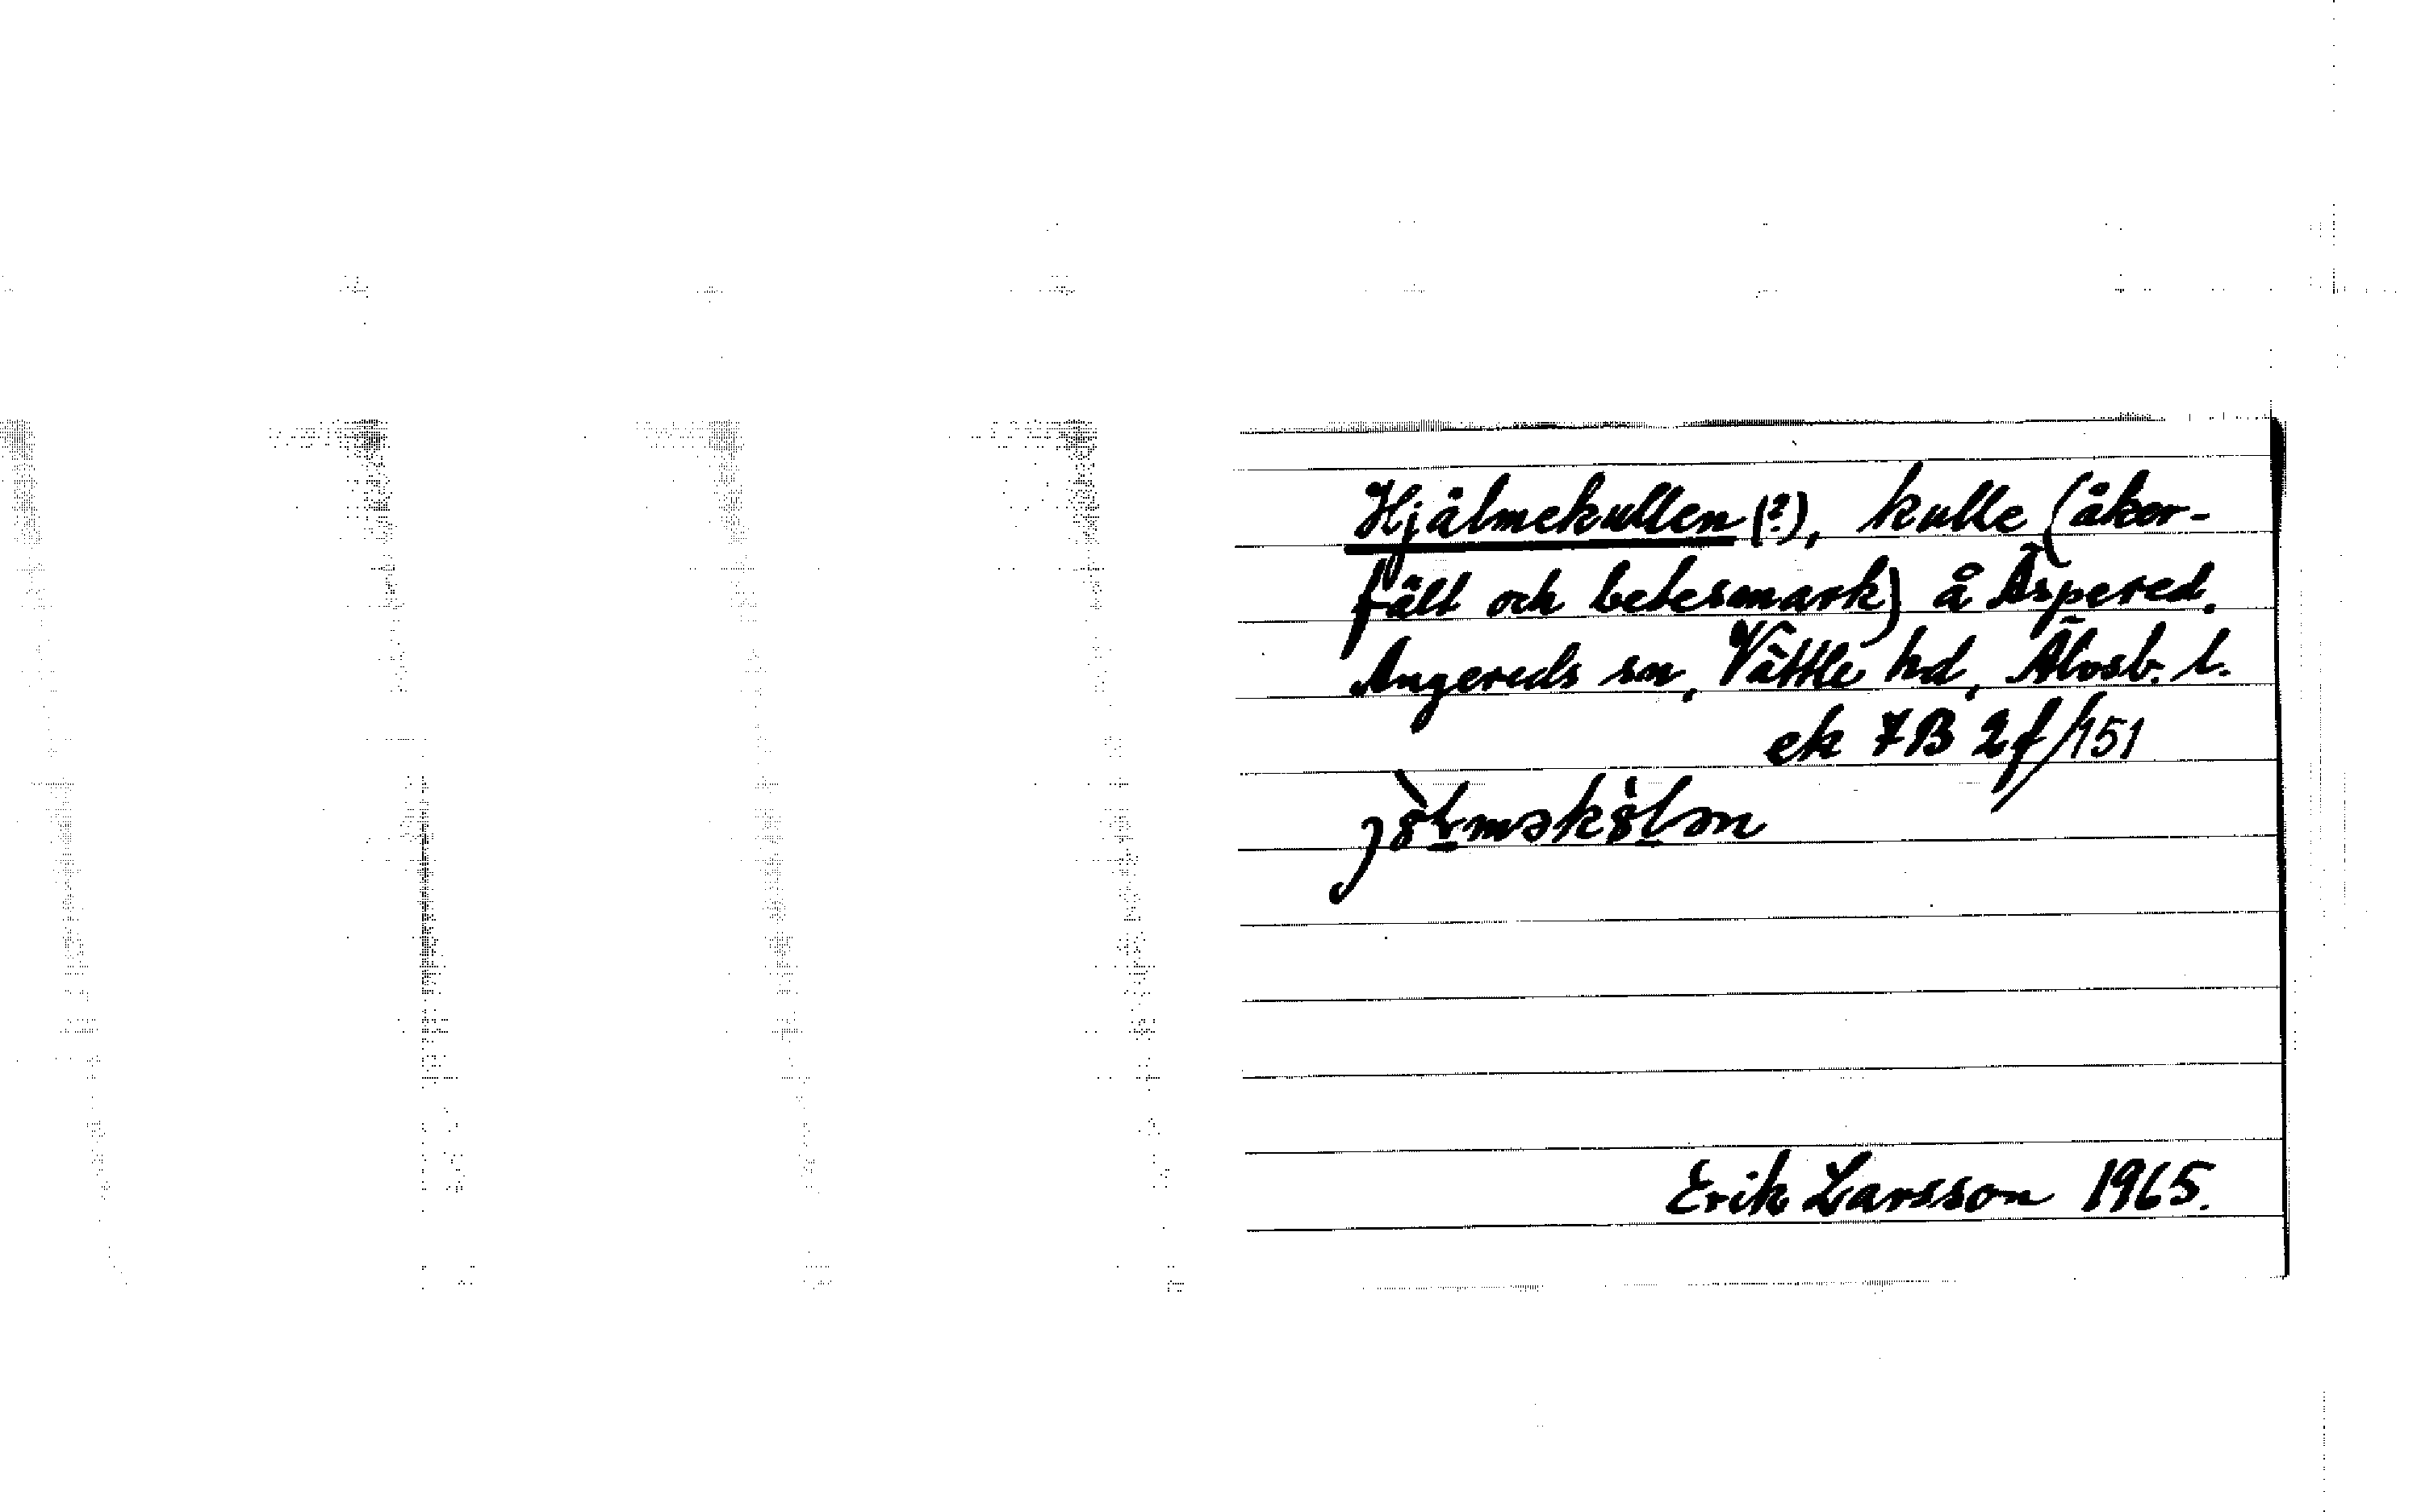 Hjälmekullen (?), kulle (åker-
fält och betesmark) å Äspered.
Angereds sn, Vättle hd, Älvsb. l.
ek 7B 2f/151
Erik Larsson 1965.